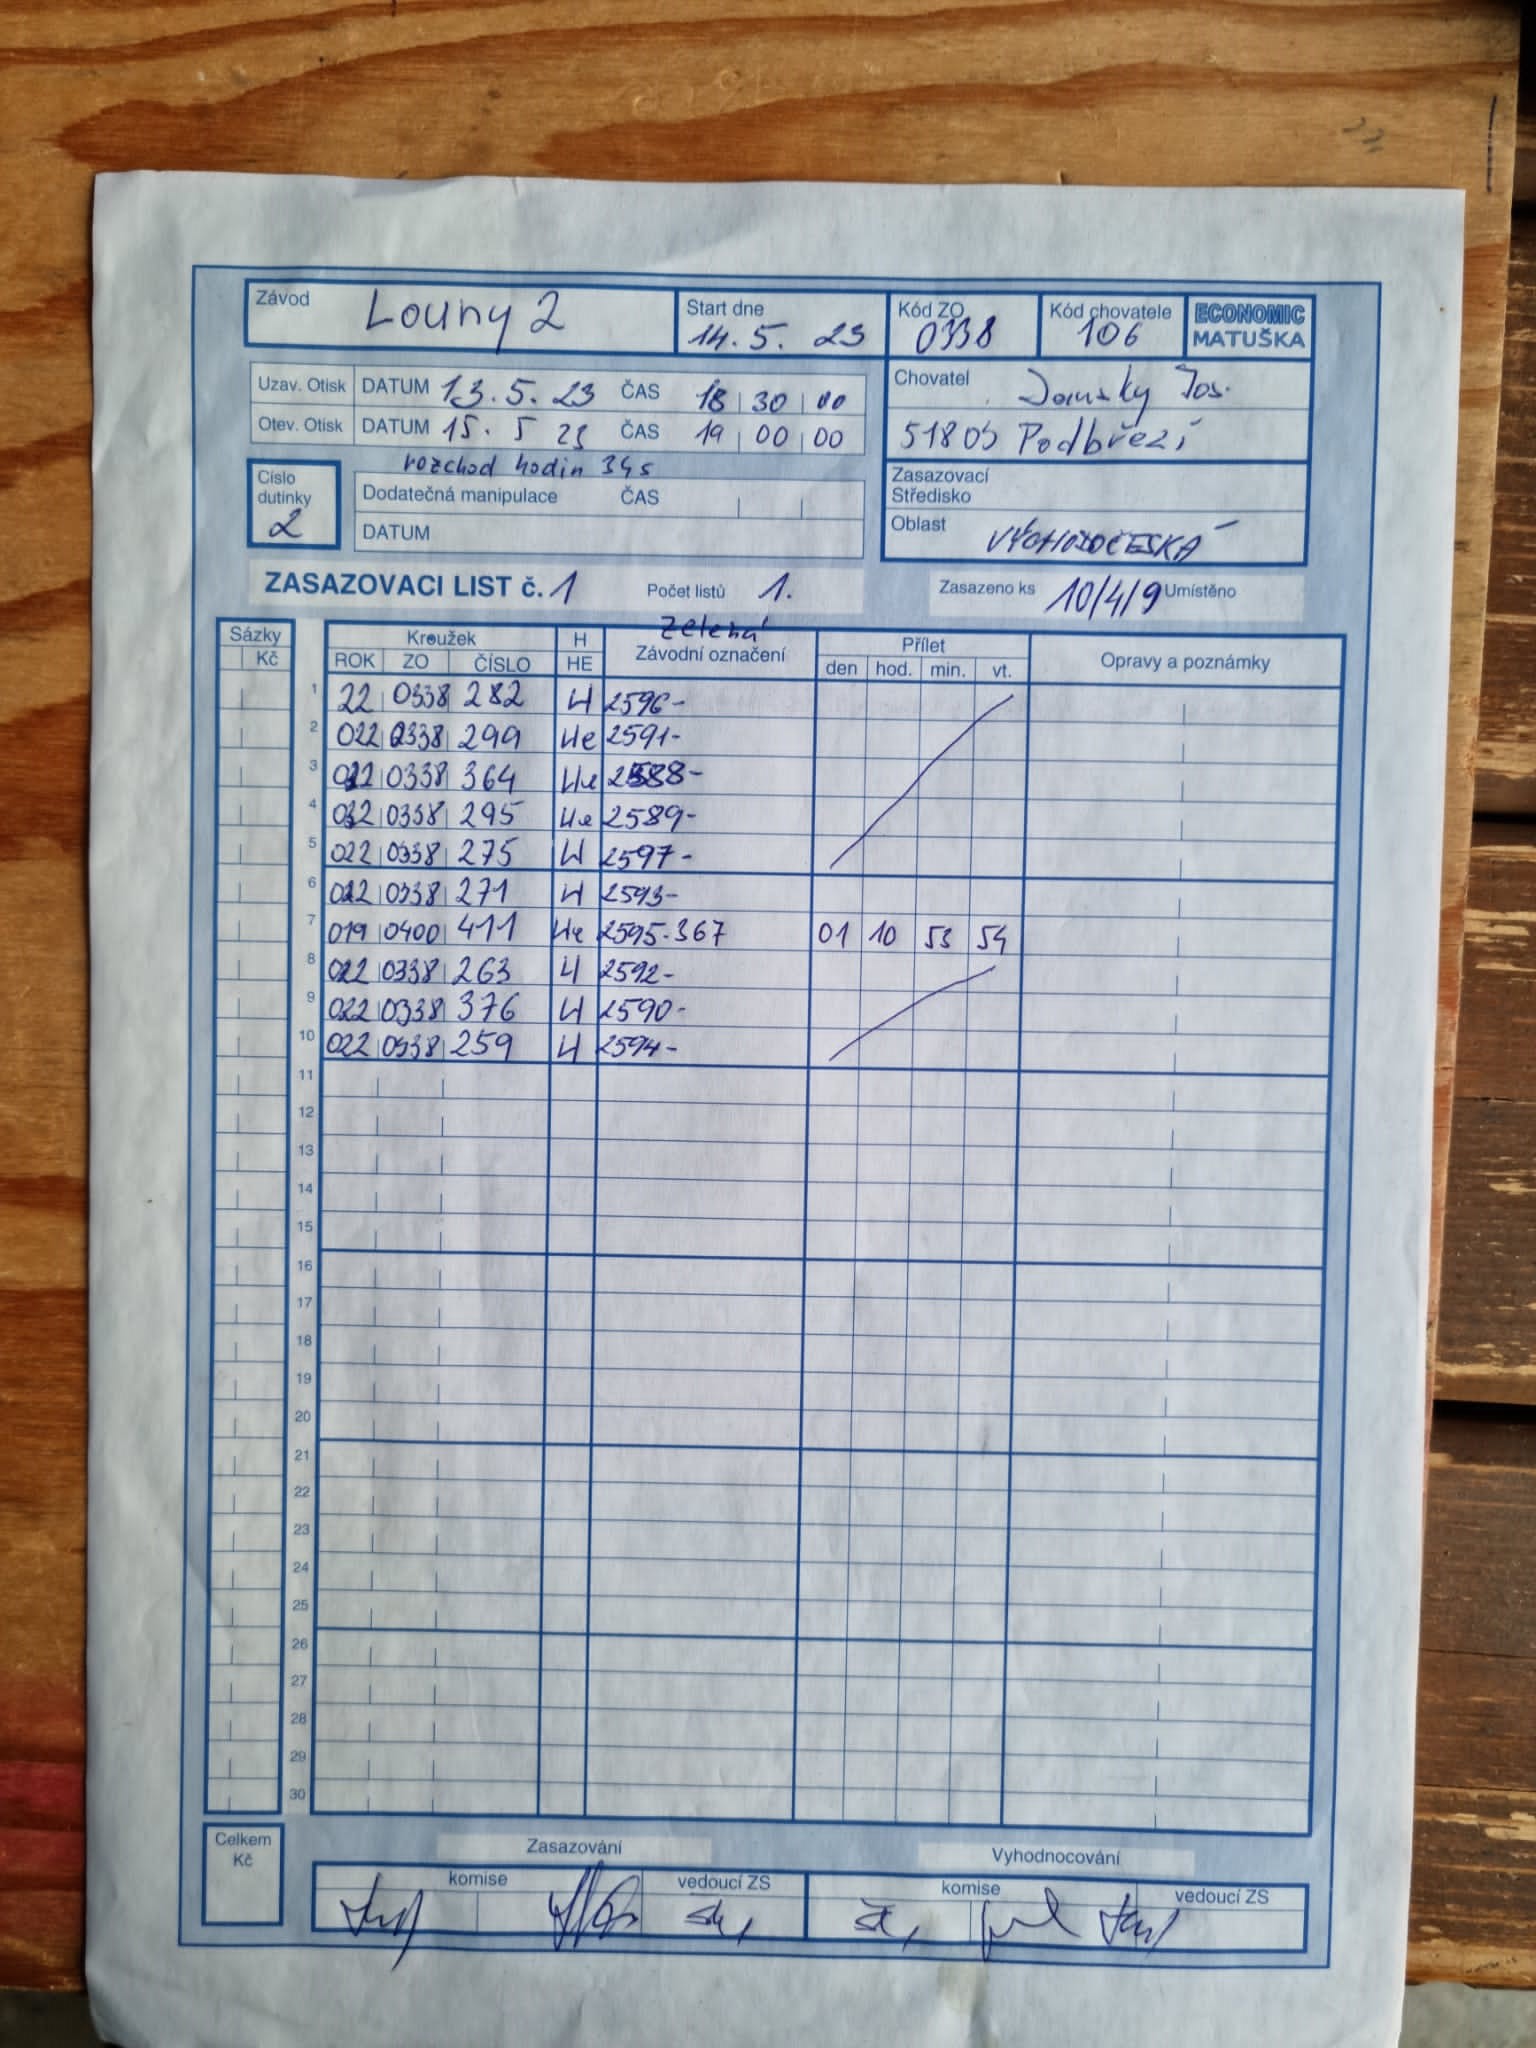 Závod Louny 2 Start dne 14. 5. 23 Kód ZO 0338 Kód chovatele 106 ECONOMIC MATUŠKA
Uzav. Otisk DATUM 13. 5. 23 ČAS 18 30 00 Chovatel Jos.
Otev. Otisk DATUM 15. 5 23 ČAS 19 00 00 51803 Podbřezí
rozchod hodin 34s
Číslo dutinky 2 Dodatečná manipulace ČAS Zasazovací Středisko
DATUM Oblast VÝCHODOČESKÁ
ZASAZOVACI LIST č. 1 Počet listů 1. Zasazeno ks 10/4/9 Umístěno
Zelená
Sázky Kroužek H Závodní označení Přílet Opravy a poznámky
Kč ROK ZO ČÍSLO HE den hod. min. vt.
1 22 0338 282 H 2596-
2 022 0338 299 He 2591-
3 022 0338 364 He 2588-
4 022 0338 295 He 2589-
5 022 0338 275 H 2597-
6 022 0338 271 H 2593-
7 019 0400 411 He 2595-367 01 10 53 54
8 022 0338 263 H 2592-
9 022 0338 376 H 2590-
10 022 0338 259 H 2594-
11
12
13
14
15
16
17
18
19
20
21
22
23
24
25
26
27
28
29
30
Celkem Kč Zasazování Vyhodnocování
komise vedoucí ZS komise vedoucí ZS